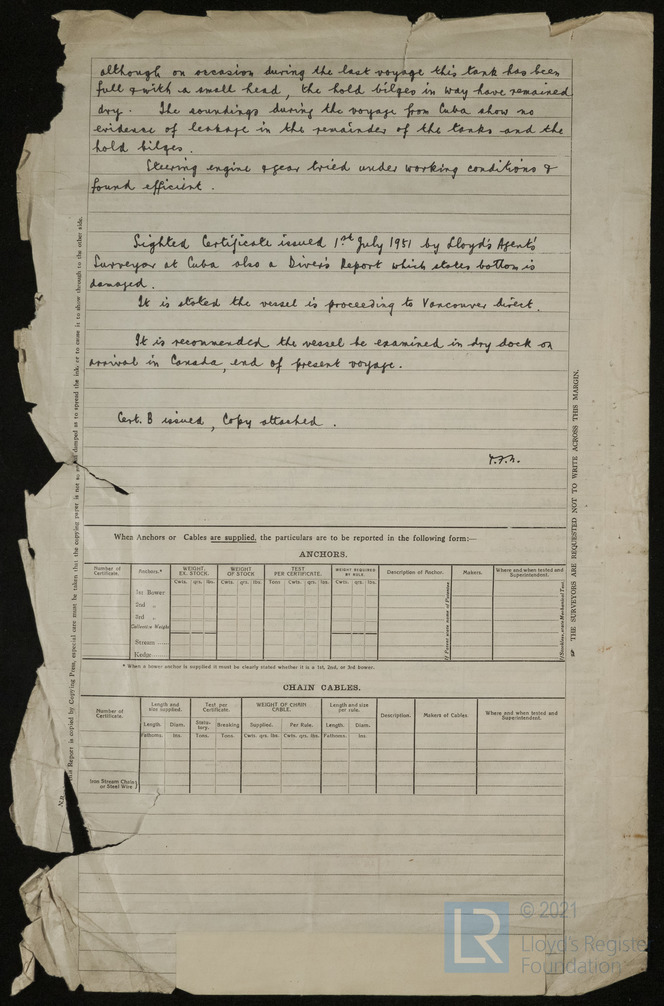 although on occasion during the last voyage this tank has been
full & with a small head, the hold bilges in way have remained
dry. The soundings during the voyage from Cuba show no
evidence of leakage in the remainder of the tanks and the
hold bilges.
Steering engine & gear tried under working conditions &
found efficient.
Sighted Certificate issued 1st July 1951 by Lloyd's Agents'
Surveyor at Cuba also a Diver's Report which states bottom is
damaged.
It is stated the vessel is proceeding to Vancouver direct.
It is recommended the vessel be examined in dry dock on
arrival in Canada, end of present voyage.
Cert. B issued, Copy attached.
When Anchors or Cables are supplied, the particulars are to be reported in the following form:—
ANCHORS.
Number of Certificate. Anchors.* WEIGHT, EX. STOCK. WEIGHT OF STOCK TEST PER CERTIFICATE. WEIGHT REQUIRED BY RULE. Description of Anchor. Makers. Where and when tested and Superintendent.
Cwts. qrs. lbs. Cwts. qrs. lbs. Tons Cwt. qrs. lbs. Cwts. qrs. lbs.
1st Bower
2nd „
3rd „
Collective Weight
Stream
Kedge
* When a bower anchor is supplied it must be clearly stated whether it is a 1st, 2nd, or 3rd bower.
CHAIN CABLES.
Number of Certificate. Length and size supplied. Test per Certificate. WEIGHT OF CHAIN CABLE. Length and size per rule. Description. Makers of Cables. Where and when tested and Superintendent.
Length. Diam. Statutory. Breaking Supplied. Per Rule. Length. Diam.
Fathoms. Ins. Tons. Tons. Cwts. qrs. lbs. Cwts. qrs. lbs. Fathoms. Ins.
Iron Stream Chain
or Steel Wire
THE SURVEYORS ARE REQUESTED NOT TO WRITE ACROSS THIS MARGIN.
Report is copied by Copying Press, especial care must be taken that the copying paper is not so damped as to spread the ink, or to cause it to show through to the other side.
LR
© 2021
Lloyd's Register
Foundation